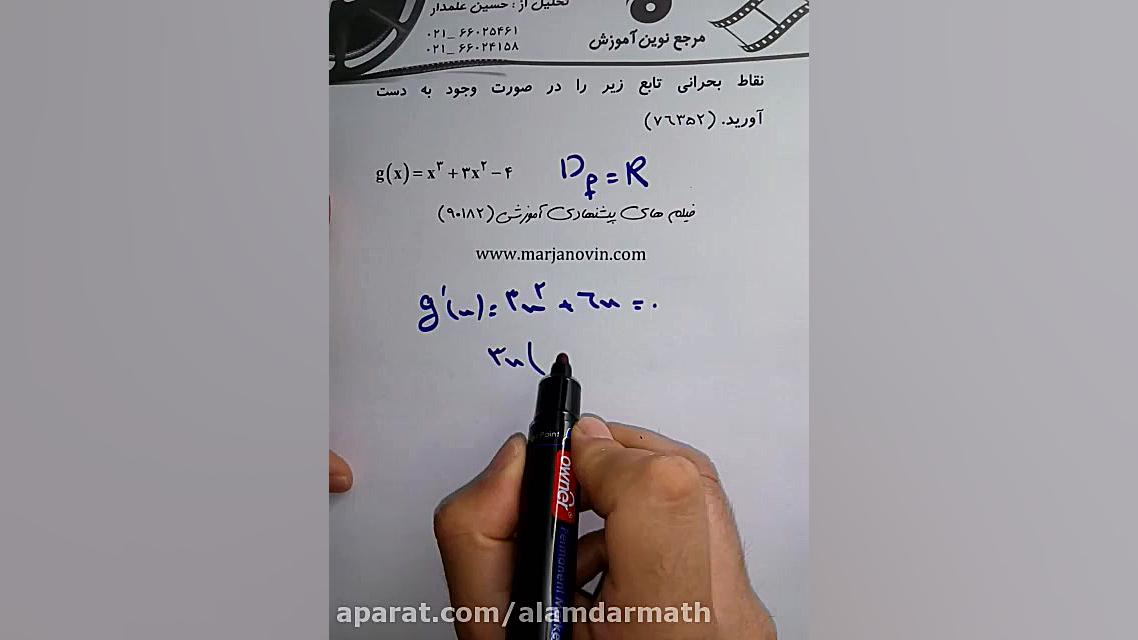 تحلیل از : حسین علمدار
۰۲۱_ ۶۶۰۲۵۴۶۱
۰۲۱_ ۶۶۰۲۴۱۵۸
مرجع نوین آموزش
نقاط بحرانی تابع زیر را در صورت وجود به دست
آورید. (۷۶۳۵۲)
g(x) = x³ + ۳x² − ۴
D_f = R
فیلم های پیشنهادی آموزشی (۹۰۱۸۲)
www.marjanovin.com
g'(x) = ۳x² + ۶x = ۰
۳x(
Point
owner
Permanent Marke
aparat.com/alamdarmath